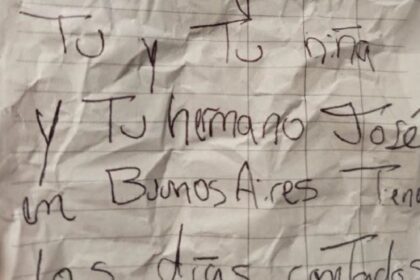 Tu y Tu niña
y Tu hermano José
en Buenos Aires Tene
los días contados